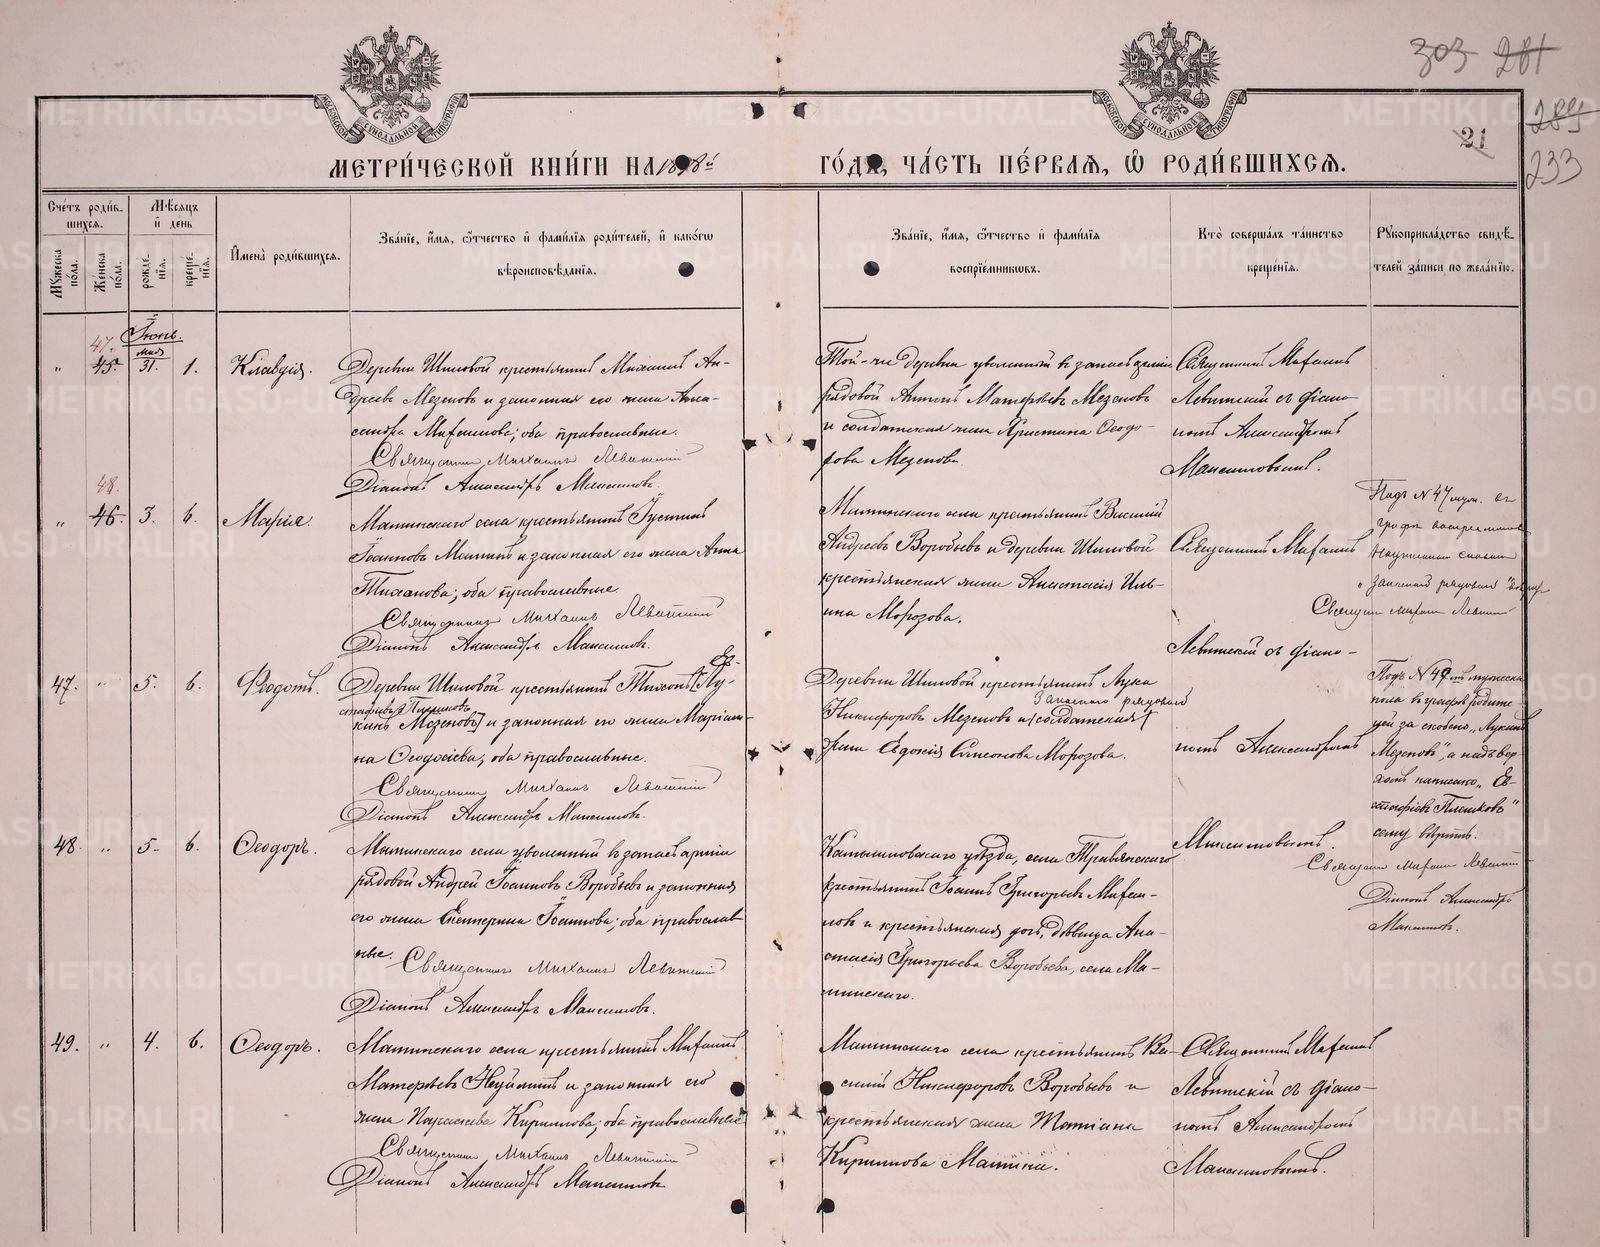 303 281
285
21
233
МЕТРИЧЕСКОЙ КНИГИ НА 1898й ГОДЪ, ЧАСТЬ ПЕРВАЯ, Ѡ РОДИВШИХСЯ.
Счетъ родив-
шихся.
Мужеска пола.
Женска пола.
Мѣсяцъ и день
рожде-
нія.
креще-
нія.
Имена родившихся.
Званіе, имя, отчество и фамилія родителей, и какого
вѣроисповѣданія.
Званіе, имя, отчество и фамилія
воспріемниковъ.
Кто совершалъ таинство
крещенія.
Рукоприкладство свидѣ-
телей записи по желанію.
Іюнь.
47.
" 45. мая 31. 1. Клавдія.
Деревни Шиповой крестьянинъ Михаилъ Ан-
дреевъ Мезеновъ и законная его жена Алек-
сандра Михаилова; оба православные.
Священникъ Михаилъ Левитскій
Діаконъ Александръ Максимовъ.
Той-же деревни уволенный въ запасъ арміи
рядовой Антонъ Матвѣевъ Мезеновъ
и солдатская жена Христина Ѳеодо-
рова Мезенова.
Священникъ Михаилъ
Левитскій съ діако-
номъ Александромъ
Максимовымъ.
48.
" 46. 3. 6. Марія.
Маминскаго села крестьянинъ Іустинъ
Іоанновъ Маминъ и законная его жена Анна
Тиханова; оба православные
Священникъ Михаилъ Левитскій
Діаконъ Александръ Максимовъ.
Маминскаго села крестьянинъ Василій
Андреевъ Воробьевъ и деревни Шиповой
крестьянская жена Анастасія Иль-
ина Морозова.
Священникъ Михаилъ
Левитскій съ діако-
номъ Александромъ
Максимовымъ.
Подъ № 47 муж. въ
графѣ воспреемниковъ
"Запаснаго рядоваго" вѣрить
Священ. Михаилъ Левитскій
47. " 5. 6. Ѳеодотъ.
Ев-
Деревни Шиповой крестьянинъ Тихонъ [Лу-
стафіевъ Плешковъ
кинъ Мезеновъ] и законная его жена Маріам-
на Ѳеодосіева; оба православные.
Священникъ Михаилъ Левитскій
Діаконъ Александръ Максимовъ.
Деревни Шиповой крестьянинъ Лука
Запаснаго рядоваго
Никифоровъ Мезеновъ и [солдатская]
жена Евдокія Самсонова Морозова.
Подъ № 47мъ мужеска
пола въ графѣ родите-
лей за скобено "Лукинъ
Мезеновъ", а надъ вер-
хомъ написано "Ев-
стафіевъ Плешковъ"
сему вѣрить.
Священ. Михаилъ Левитскій
Діаконъ Александръ
Максимовъ.
48. " 5. 6. Ѳеодоръ.
Маминскаго села уволенный въ запасъ арміи
рядовой Андрей Іоанновъ Воробьевъ и законная
его жена Екатерина Іоаннова; оба православ-
ные.
Священникъ Михаилъ Левитскій
Діаконъ Александръ Максимовъ.
Камышловскаго уѣзда, села Травянскаго
крестьянинъ Іоаннъ Григорьевъ Михаи-
ловъ и крестьянская дочь, дѣвица Ана-
стасія Григорьева Воробьева, села Ма-
минскаго.
49. " 4. 6. Ѳеодоръ.
Маминскаго села крестьянинъ Михаилъ
Матвѣевъ Неуйминъ и законная его
жена Параскева Кирилова; оба православные
Священникъ Михаилъ Левитскій
Діаконъ Александръ Максимовъ
Маминскаго села крестьянинъ Ва-
силій Никифоровъ Воробьевъ и
крестьянская жена Татіана
Кирилова Мамина.
Священникъ Михаилъ
Левитскій съ діако-
номъ Александромъ
Максимовымъ.
METRIKI.GASO-URAL.RU